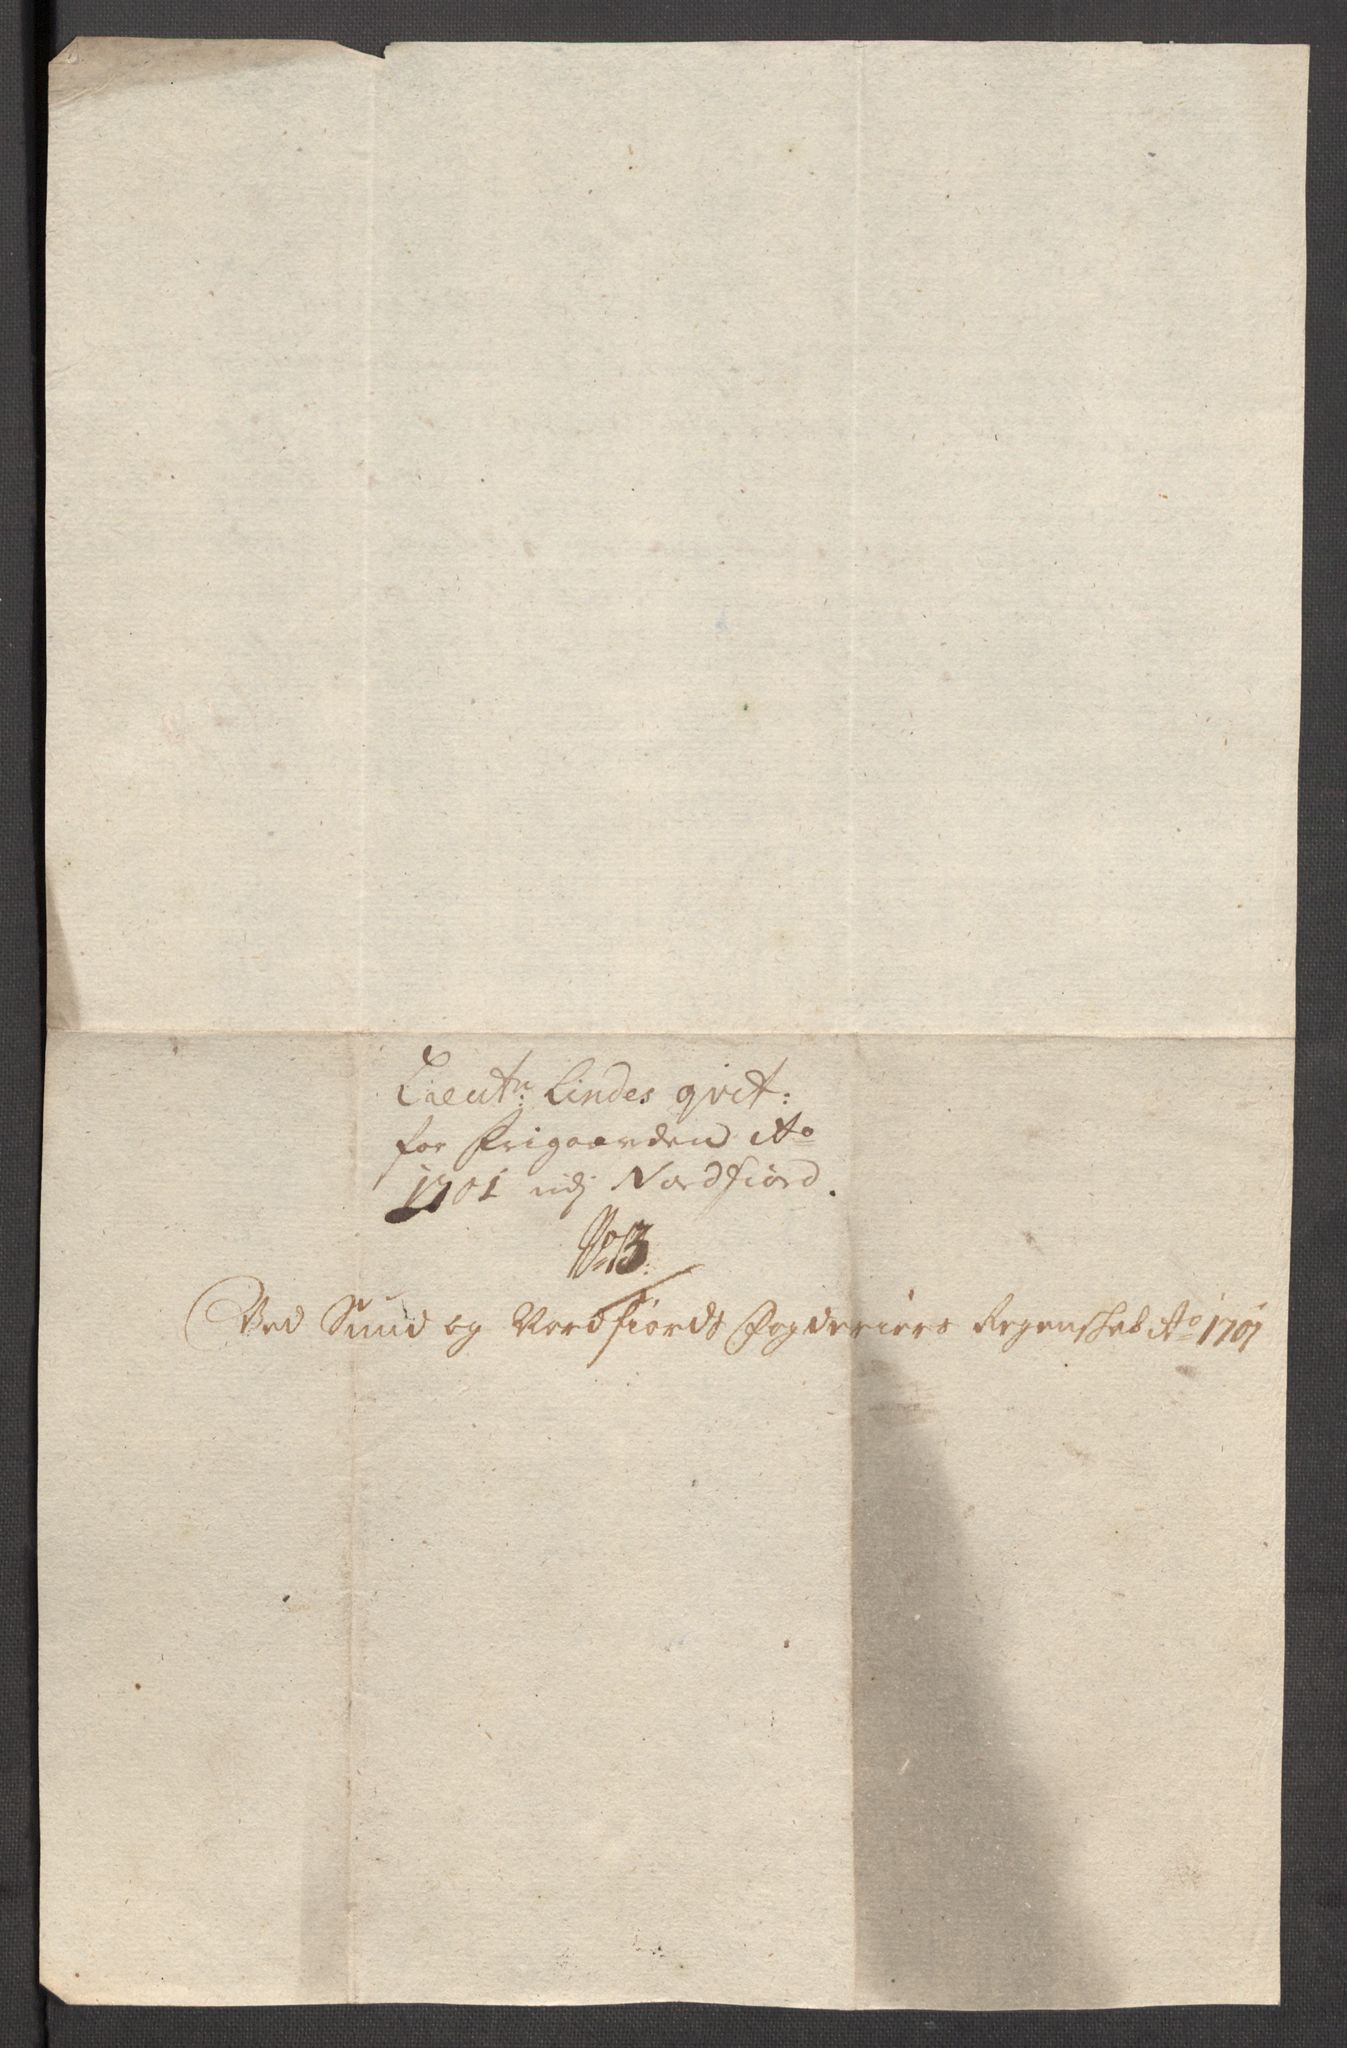 Lieutn: Lindes qvit:
for Frigaarden Ao
1701 udj Nordfiord.
No 13:
Ved Sund og Nordfiords Fogderiers Regenskab Ao 1701